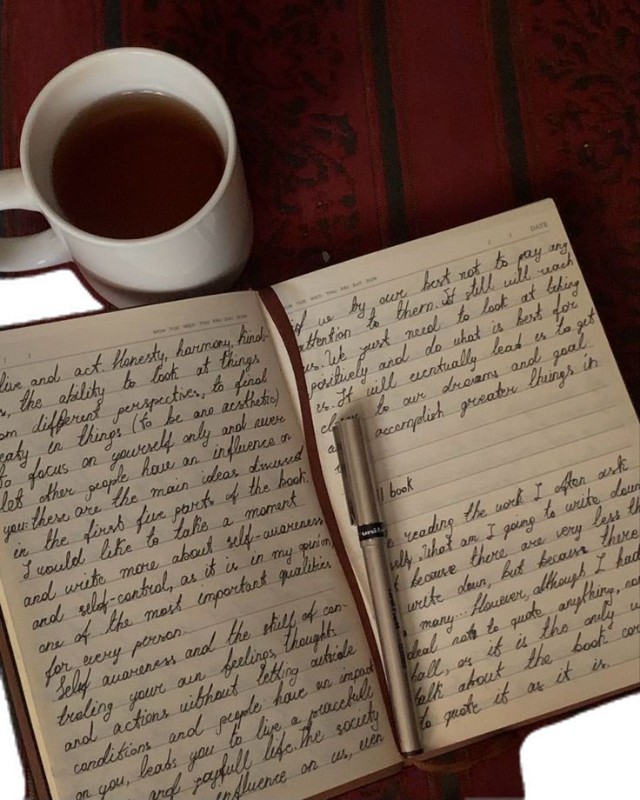 MON TUE WED THU FRI SAT SUN
live and act. Honesty, harmony, kind-
s, the ability to look at things
om different perspectives, to find
eaty in things (to be are aesthetic)
to focus on yourself only and never
let other people have an influence on
you. these are the main ideas discussed
in the first five parts of the book.
I would like to take a moment
and write more about self-awareness
and self-control, as it is in my opinion,
one of the most important qualities
for every person.
Self awareness and the skill of con-
troling your own feelings, thoughts
and actions without letting outside
conditions and people have an impact
on you, leads you to live a peacefull
and joyfull life. The society
influence on us, even
DATE
MON TUE WED THU FRI SAT SUN
if we by our best not to pay any
attention to them. It still will reach
us. We just need to look at things
positively and do what is best for
us. It will eventually lead us to get
to our dreams and goal
accomplish greater things in
ll book
reading the work I often ask
what am I going to write down
because there are very less th
write down, but because there
many... However, although I had
deal not to quote anything, no
all, as it is the only w
talk about the book cor
to quote it as it is.
uni